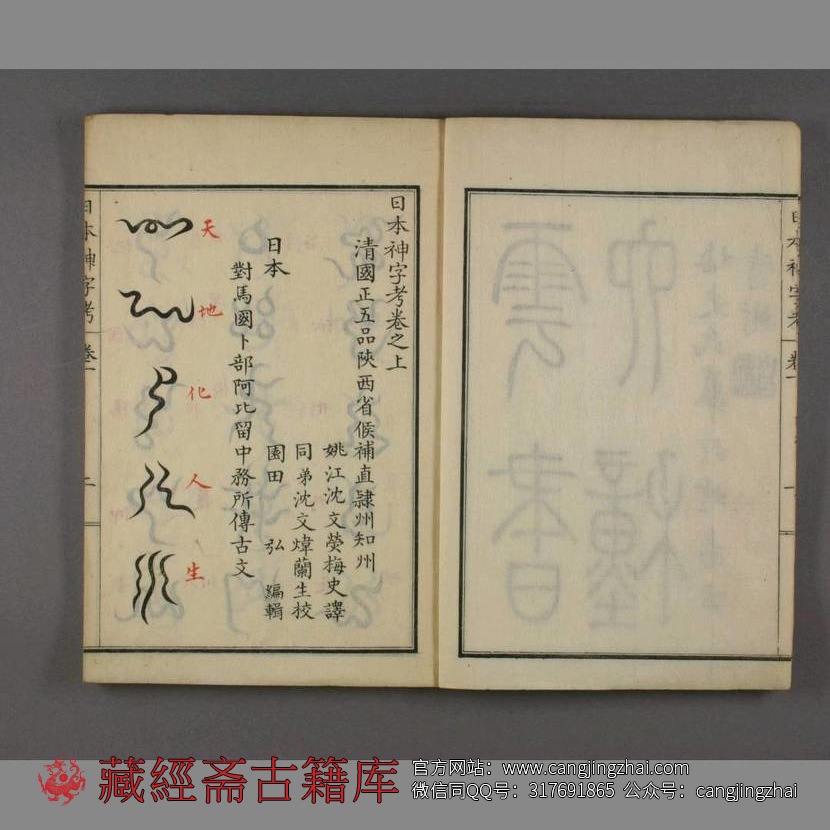 日本神字考卷之上
清國正五品陝西省候補直隷州知州
姚江沈文熒梅史譯
同弟沈文煒蘭生校
日本
園田 弘 編輯
對馬國卜部阿比留中務所傳古文
天
地
化
人
生
日本神字考 卷一 二
日本神字考 卷一 一
藏經斋古籍库
官方网站：www.cangjingzhai.com
微信同QQ号：317691865 公众号：cangjingzhai